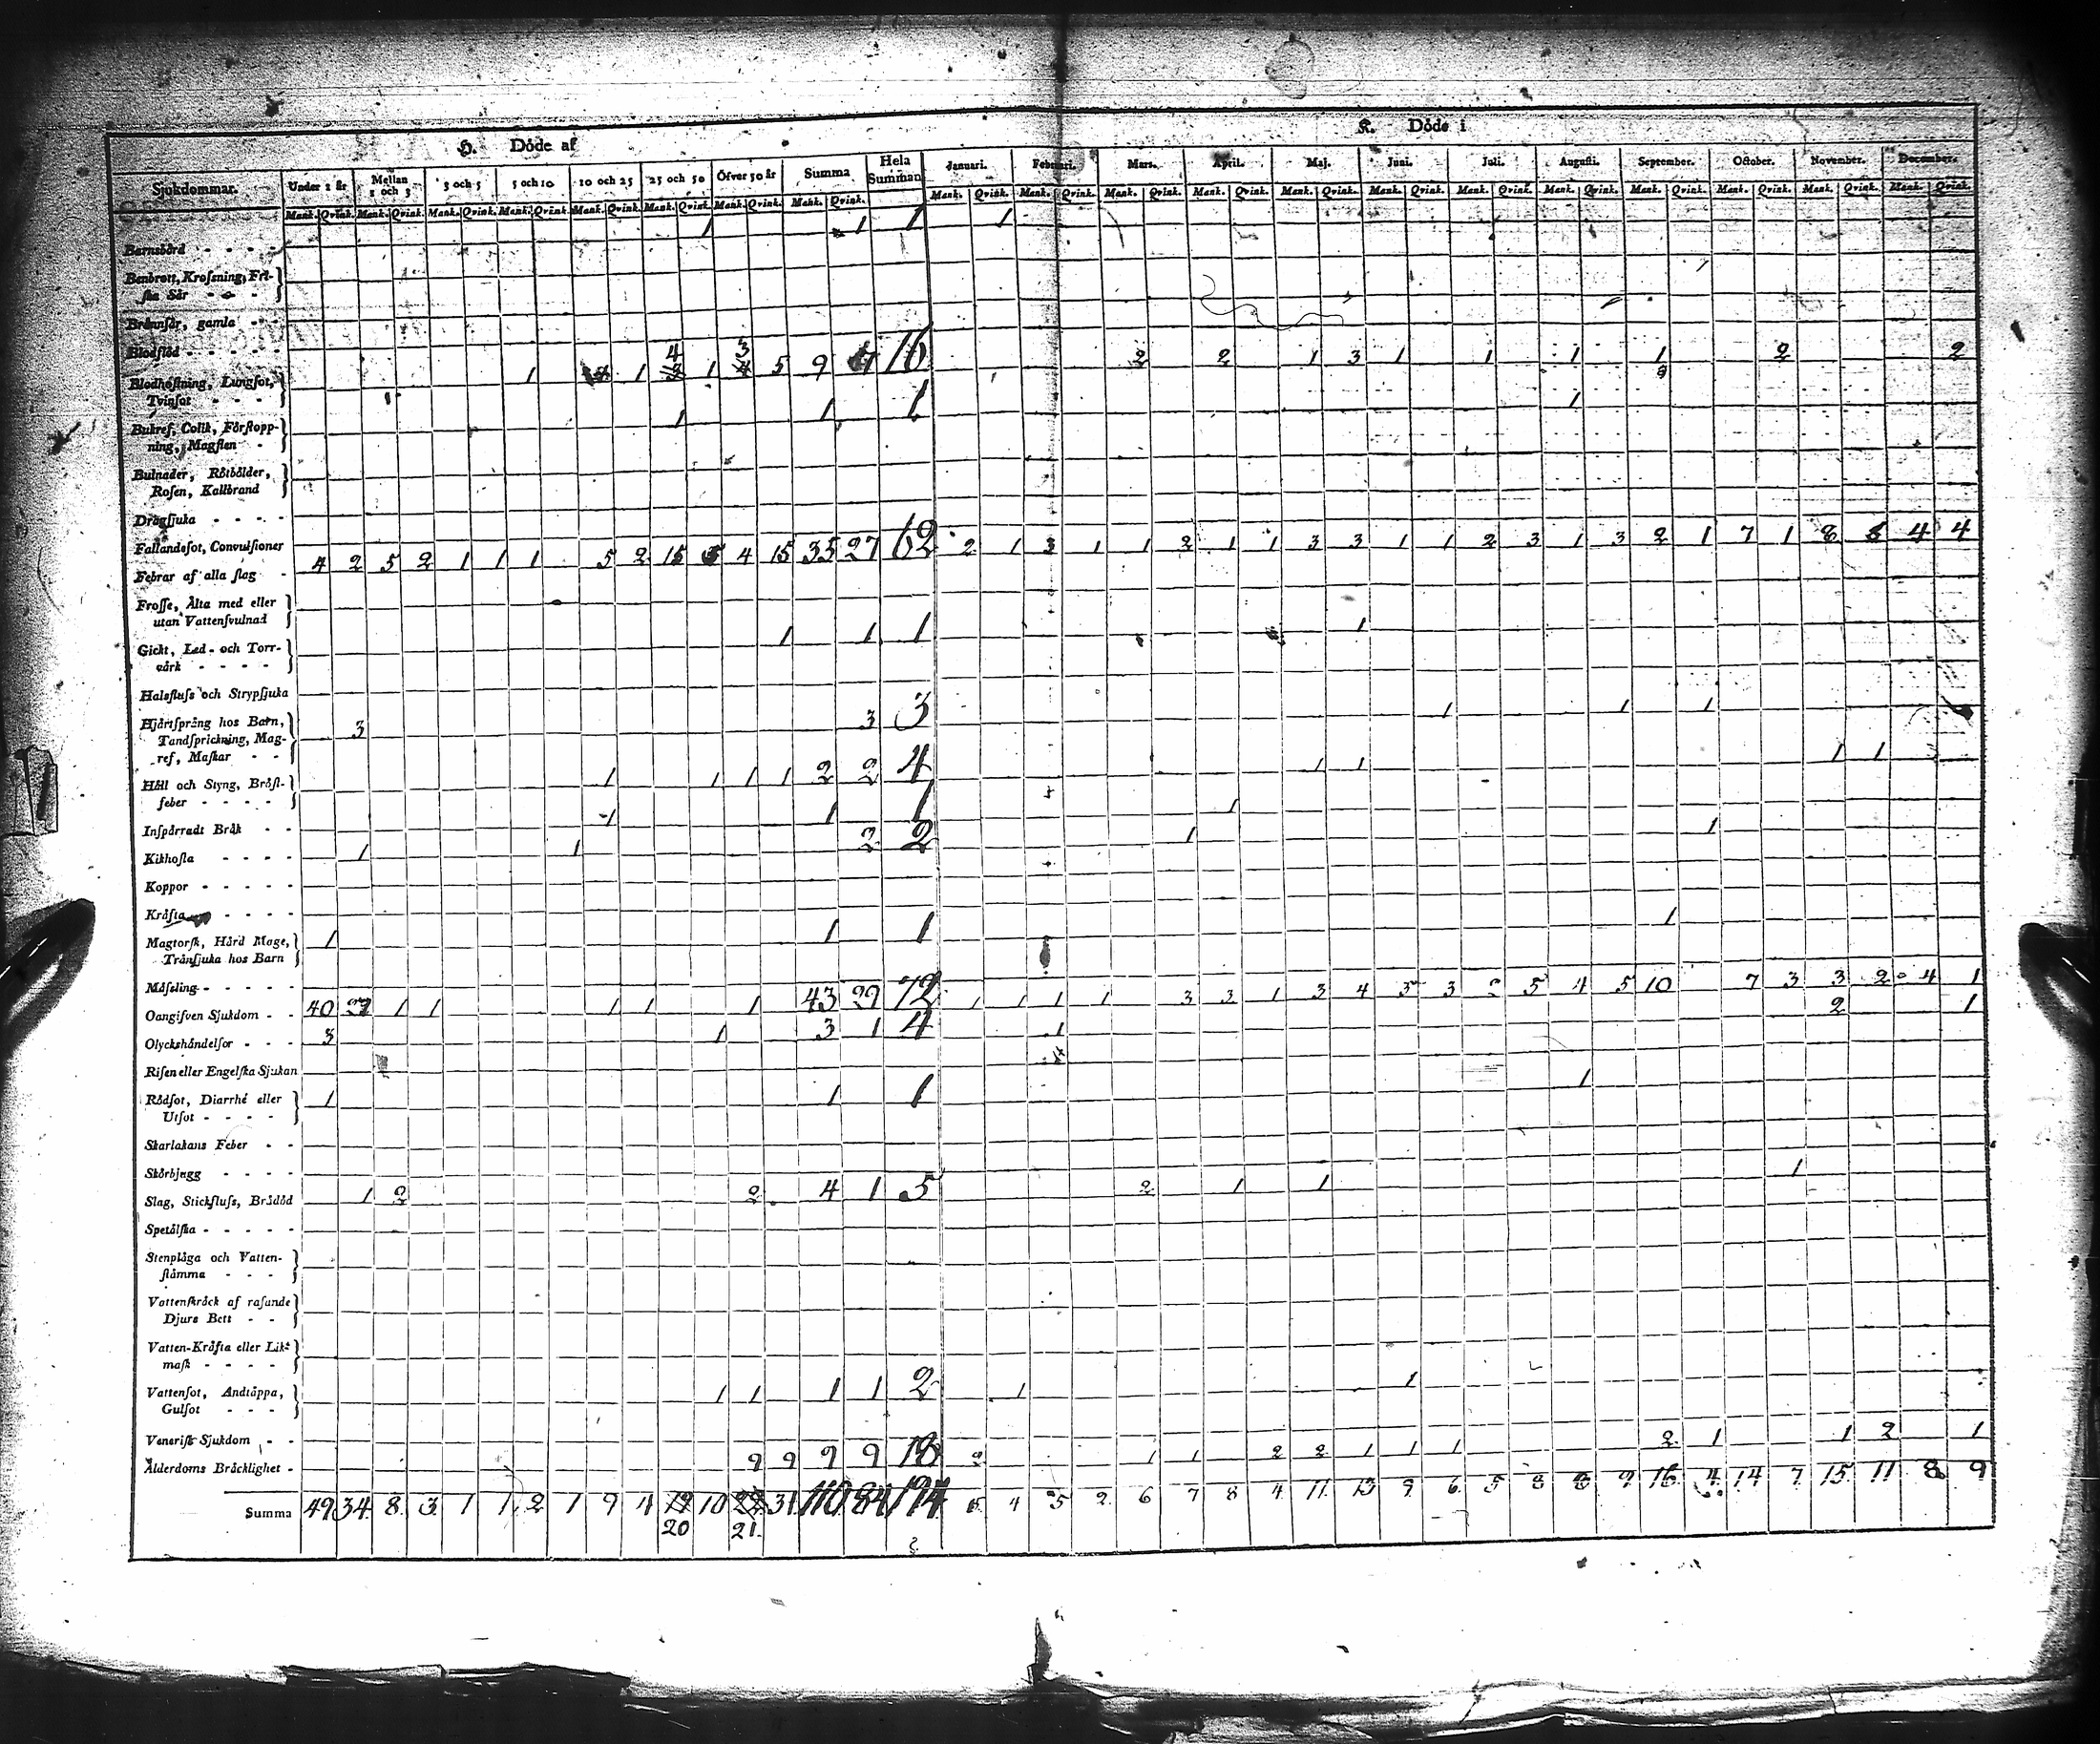 H. Döde af
K. Döde i
Sjukdommar. Under 1 år Mellan 1 och 3 3 och 5 5 och 10 10 och 25 25 och 50 Öfver 50 år Summa Hela Summan Januari. Februari. Mars. April. Maj. Juni. Juli. Augusti. September. October. November. December.
Mank. Qvink. Mank. Qvink. Mank. Qvink. Mank. Qvink. Mank. Qvink. Mank. Qvink. Mank. Qvink. Mank. Qvink. Mank. Qvink. Mank. Qvink. Mank. Qvink. Mank. Qvink. Mank. Qvink. Mank. Qvink. Mank. Qvink. Mank. Qvink. Mank. Qvink. Mank. Qvink. Mank. Qvink. Mank. Qvink.
Barnsbörd - - - - 1 1 1 1
Benbrott, Krosning, Fri-
ska Sår - - -
Brännsår, gamla - -
Blodflöd - - - - -
Blodhostning, Lungsot, 1 1 4 1 3 5 9 7 16 2 2 1 3 1 1 1 1 2 2
Tvinsot - - - -
Bukref, Colik, Förstopp- 1 1 1 1
ning, Magsten -
Bulnader, Rötbölder,
Rosen, Kallbrand
Dragsjuka - - - -
Fallandesot, Convulsioner
Febrar af alla slag - 4 2 5 2 1 1 1 5 2 15 5 4 15 35 27 62 2 1 3 1 1 2 1 1 3 3 1 1 2 3 1 3 2 1 7 1 8 8 4 4
Frossa, Älta med eller
utan Vattensvulnad
Gickt, Led- och Torr- 1 1 1 1
värk - - - -
Halsfluss och Strypsjuka
Hjärtsprång hos Barn, 3 3 3 1 1 1
Tandsprickning, Mag-
ref, Maskar - -
Håll och Styng, Bröst- 1 1 1 1 2 2 4 1 1 1 1
feber - - - -
Inspärradt Bråk - - 1 1 1 1
Kikhosta - - - - 1 1 2 2 1 1
Koppor - - - - -
Kräfta - - - -
Magtorsk, Hård Mage, 1 1 1 1
Trånsjuka hos Barn
Mäseling - - - - -
Oangifven Sjukdom - - 40 27 1 1 1 1 1 43 29 72 1 1 1 1 3 3 1 3 4 5 3 2 5 4 5 10 7 3 3 2 4 1
Olyckshändelser - - - 3 1 3 1 4 1 2 1
Risen eller Engelska Sjukan
Rödsot, Diarrhé eller 1 1 1 1
Utsot - - - -
Skarlakans Feber - -
Skörbjugg - - - -
Slag, Stickfluss, Brådöd 1 2 2 4 1 5 2 1 1 1
Spetälska - - - - -
Stenplåga och Vatten-
stämma - - - -
Vattenskräck af rasande
Djurs Bett - -
Vatten-Kräfta eller Lik-
mask - - - -
Vattensot, Andtäppa, 1 1 1 1 2 1 1
Gulsot - - -
Venerisk Sjukdom - -
Ålderdoms Bräcklighet - 9 9 9 9 18 2 1 1 2 2 1 1 1 2 1 1 2 1
Summa 49 34 8 3 1 1 2 1 9 4 19 10 22 31 110 84 194 5 4 5 2 6 7 8 4 11 13 9 6 5 8 8 9 16 4 14 7 15 11 8 9
20 21